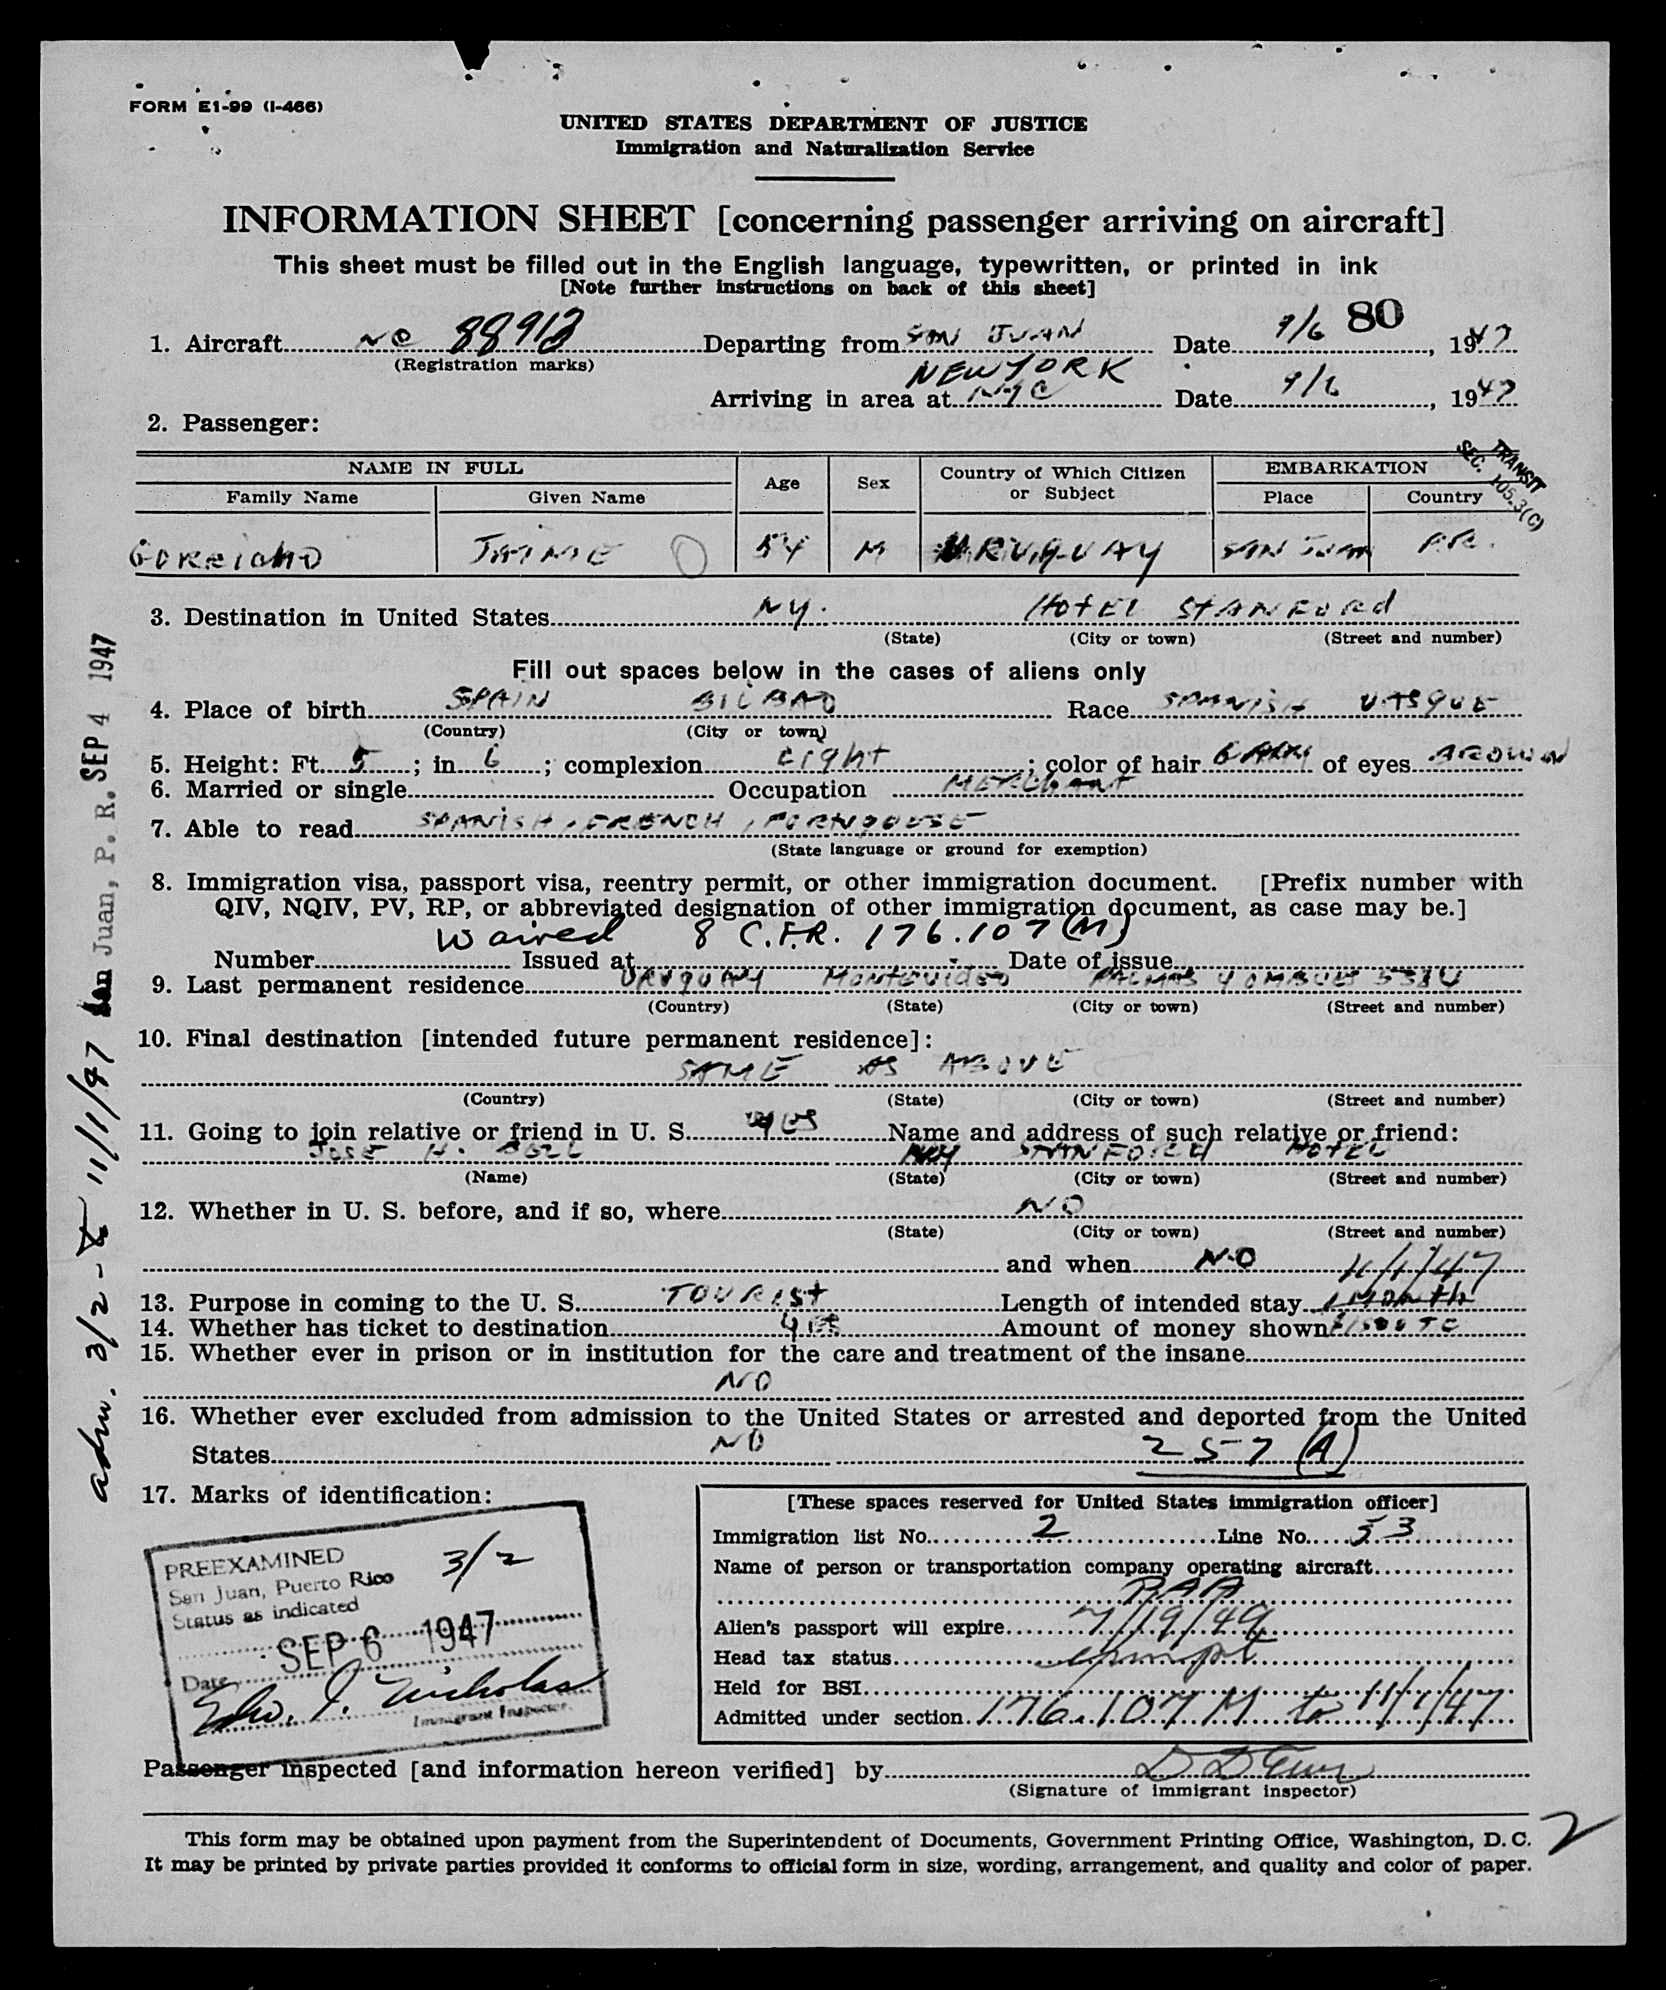 FORM E1-99 (I-466)
UNITED STATES DEPARTMENT OF JUSTICE
Immigration and Naturalization Service
INFORMATION SHEET [concerning passenger arriving on aircraft]
This sheet must be filled out in the English language, typewritten, or printed in ink
[Note further instructions on back of this sheet]
80
1. Aircraft NC 88913 Departing from SAN JUAN Date 9/6, 1947
(Registration marks)
NEW YORK
Arriving in area at NYC Date 9/6, 1947
2. Passenger:
TRANSIT
SEC. 105.3(C)
NAME IN FULL Age Sex Country of Which Citizen or Subject EMBARKATION
Family Name Given Name Place Country
JAIME 54 M URUGUAY SAN JUAN P.R.
3. Destination in United States NY. HOTEL STANFORD
(State) (City or town) (Street and number)
Fill out spaces below in the cases of aliens only
4. Place of birth SPAIN BILBAO Race SPANISH VASQUE
(Country) (City or town)
5. Height: Ft. 5; in. 6; complexion LIGHT; color of hair of eyes BROWN
6. Married or single Occupation MERCHANT
7. Able to read SPANISH, FRENCH,
(State language or ground for exemption)
8. Immigration visa, passport visa, reentry permit, or other immigration document. [Prefix number with
QIV, NQIV, PV, RP, or abbreviated designation of other immigration document, as case may be.]
Waived 8 C.F.R. 176.107(M)
Number Issued at Date of issue
9. Last permanent residence URUGUAY MONTEVIDEO PALMAS Y OMBUES 5584
(Country) (State) (City or town) (Street and number)
10. Final destination [intended future permanent residence]:
SAME AS ABOVE
(Country) (State) (City or town) (Street and number)
11. Going to join relative or friend in U. S. YES Name and address of such relative or friend:
JOSE H. NY STANFORD HOTEL
(Name) (State) (City or town) (Street and number)
12. Whether in U. S. before, and if so, where NO
(State) (City or town) (Street and number)
and when NO
11/1/47
13. Purpose in coming to the U. S. TOURIST Length of intended stay 1 MONTH
14. Whether has ticket to destination YES Amount of money shown
15. Whether ever in prison or in institution for the care and treatment of the insane
NO
16. Whether ever excluded from admission to the United States or arrested and deported from the United
States NO 257 (A)
17. Marks of identification:
PREEXAMINED 3/2
San Juan, Puerto Rico
Status as indicated
Date SEP 6 1947
Edw. J. Nicholas
Immigrant Inspector.
[These spaces reserved for United States immigration officer]
Immigration list No. 2 Line No. 53
Name of person or transportation company operating aircraft
PAA
Alien's passport will expire 7/19/49
Head tax status exempt
Held for BSI
Admitted under section 176.107 M to 11/1/47
Passenger inspected [and information hereon verified] by
(Signature of immigrant inspector)
This form may be obtained upon payment from the Superintendent of Documents, Government Printing Office, Washington, D. C.
It may be printed by private parties provided it conforms to official form in size, wording, arrangement, and quality and color of paper.
2
adm. 3/2 - 11/1/47 San Juan, P. R. SEP 4 1947